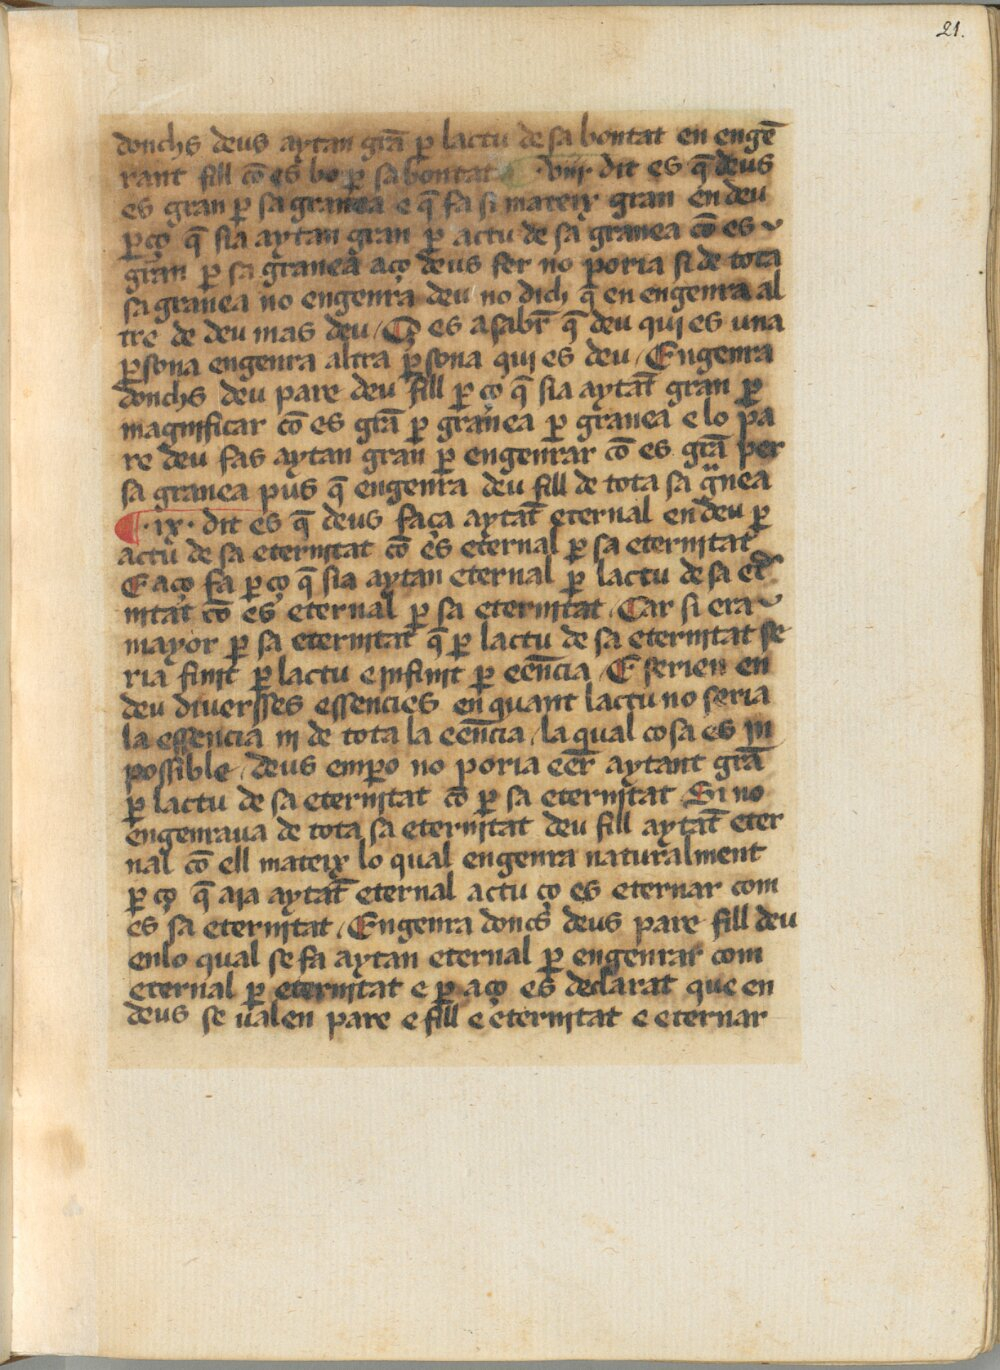 21.
donchs deus aytan grā ꝑ lactu de sa bontat en engē
rant fill cō es bo ꝑ sa bontat ¶ ·viij· dit es q̄ deus
es gran ꝑ sa granea e q̄ fa si mateix gran en deu
ꝑ ço q̄ sia aytan gran ꝑ actu de sa granea cō es
gran ꝑ sa granea aço deus fer no poria si de tota
sa granea no engenra deu no dich q̄ en engenra al
tre de deu mas deu / Ço es a sabr̄ q̄ deu qui es una
ꝑsona engenra altra ꝑsona qui es deu / Engenra
donchs deu pare deu fill ꝑ ço q̄ sia aytāt gran ꝑ
magnificar cō es grā ꝑ granea ꝑ granea e lo pa
re deu fas aytan gran ꝑ engenrar cō es grā per
sa granea pus q̄ engenra deu fill de tota sa gͣnea
¶ ·ix· dit es q̄ deus faça aytāt eternal en deu ꝑ
actu de sa eternitat cō es eternal ꝑ sa eternitat
E aço fa ꝑ ço q̄ sia aytan eternal ꝑ lactu de sa et̄
nitat cō es eternal ꝑ sa eternitat / Car si era
mayor ꝑ sa eternitat q̄ ꝑ lactu de sa eternitat se
ria finit ꝑ lactu e infinit ꝑ eēncia / E serien en
deu diuersses essencies en quant lactu no seria
la essencia ni de tota la eēncia / la qual cosa es in
possible / deus emꝑo no poria eēr aytant grā
ꝑ lactu de sa eternitat cō ꝑ sa eternitat Si no
engenraua de tota sa eternitat deu fill aytāt eter
nal cō ell mateix lo qual engenra naturalment
ꝑ ço q̄ aia aytāt eternal actu ço es eternar com
es sa eternitat / Engenra doncs deus pare fill deu
enlo qual se fa aytan eternal ꝑ engenrar com
eternal ꝑ eternitat e ꝑ aço es declarat que en
deus se ualen pare e fill e eternitat e eternar